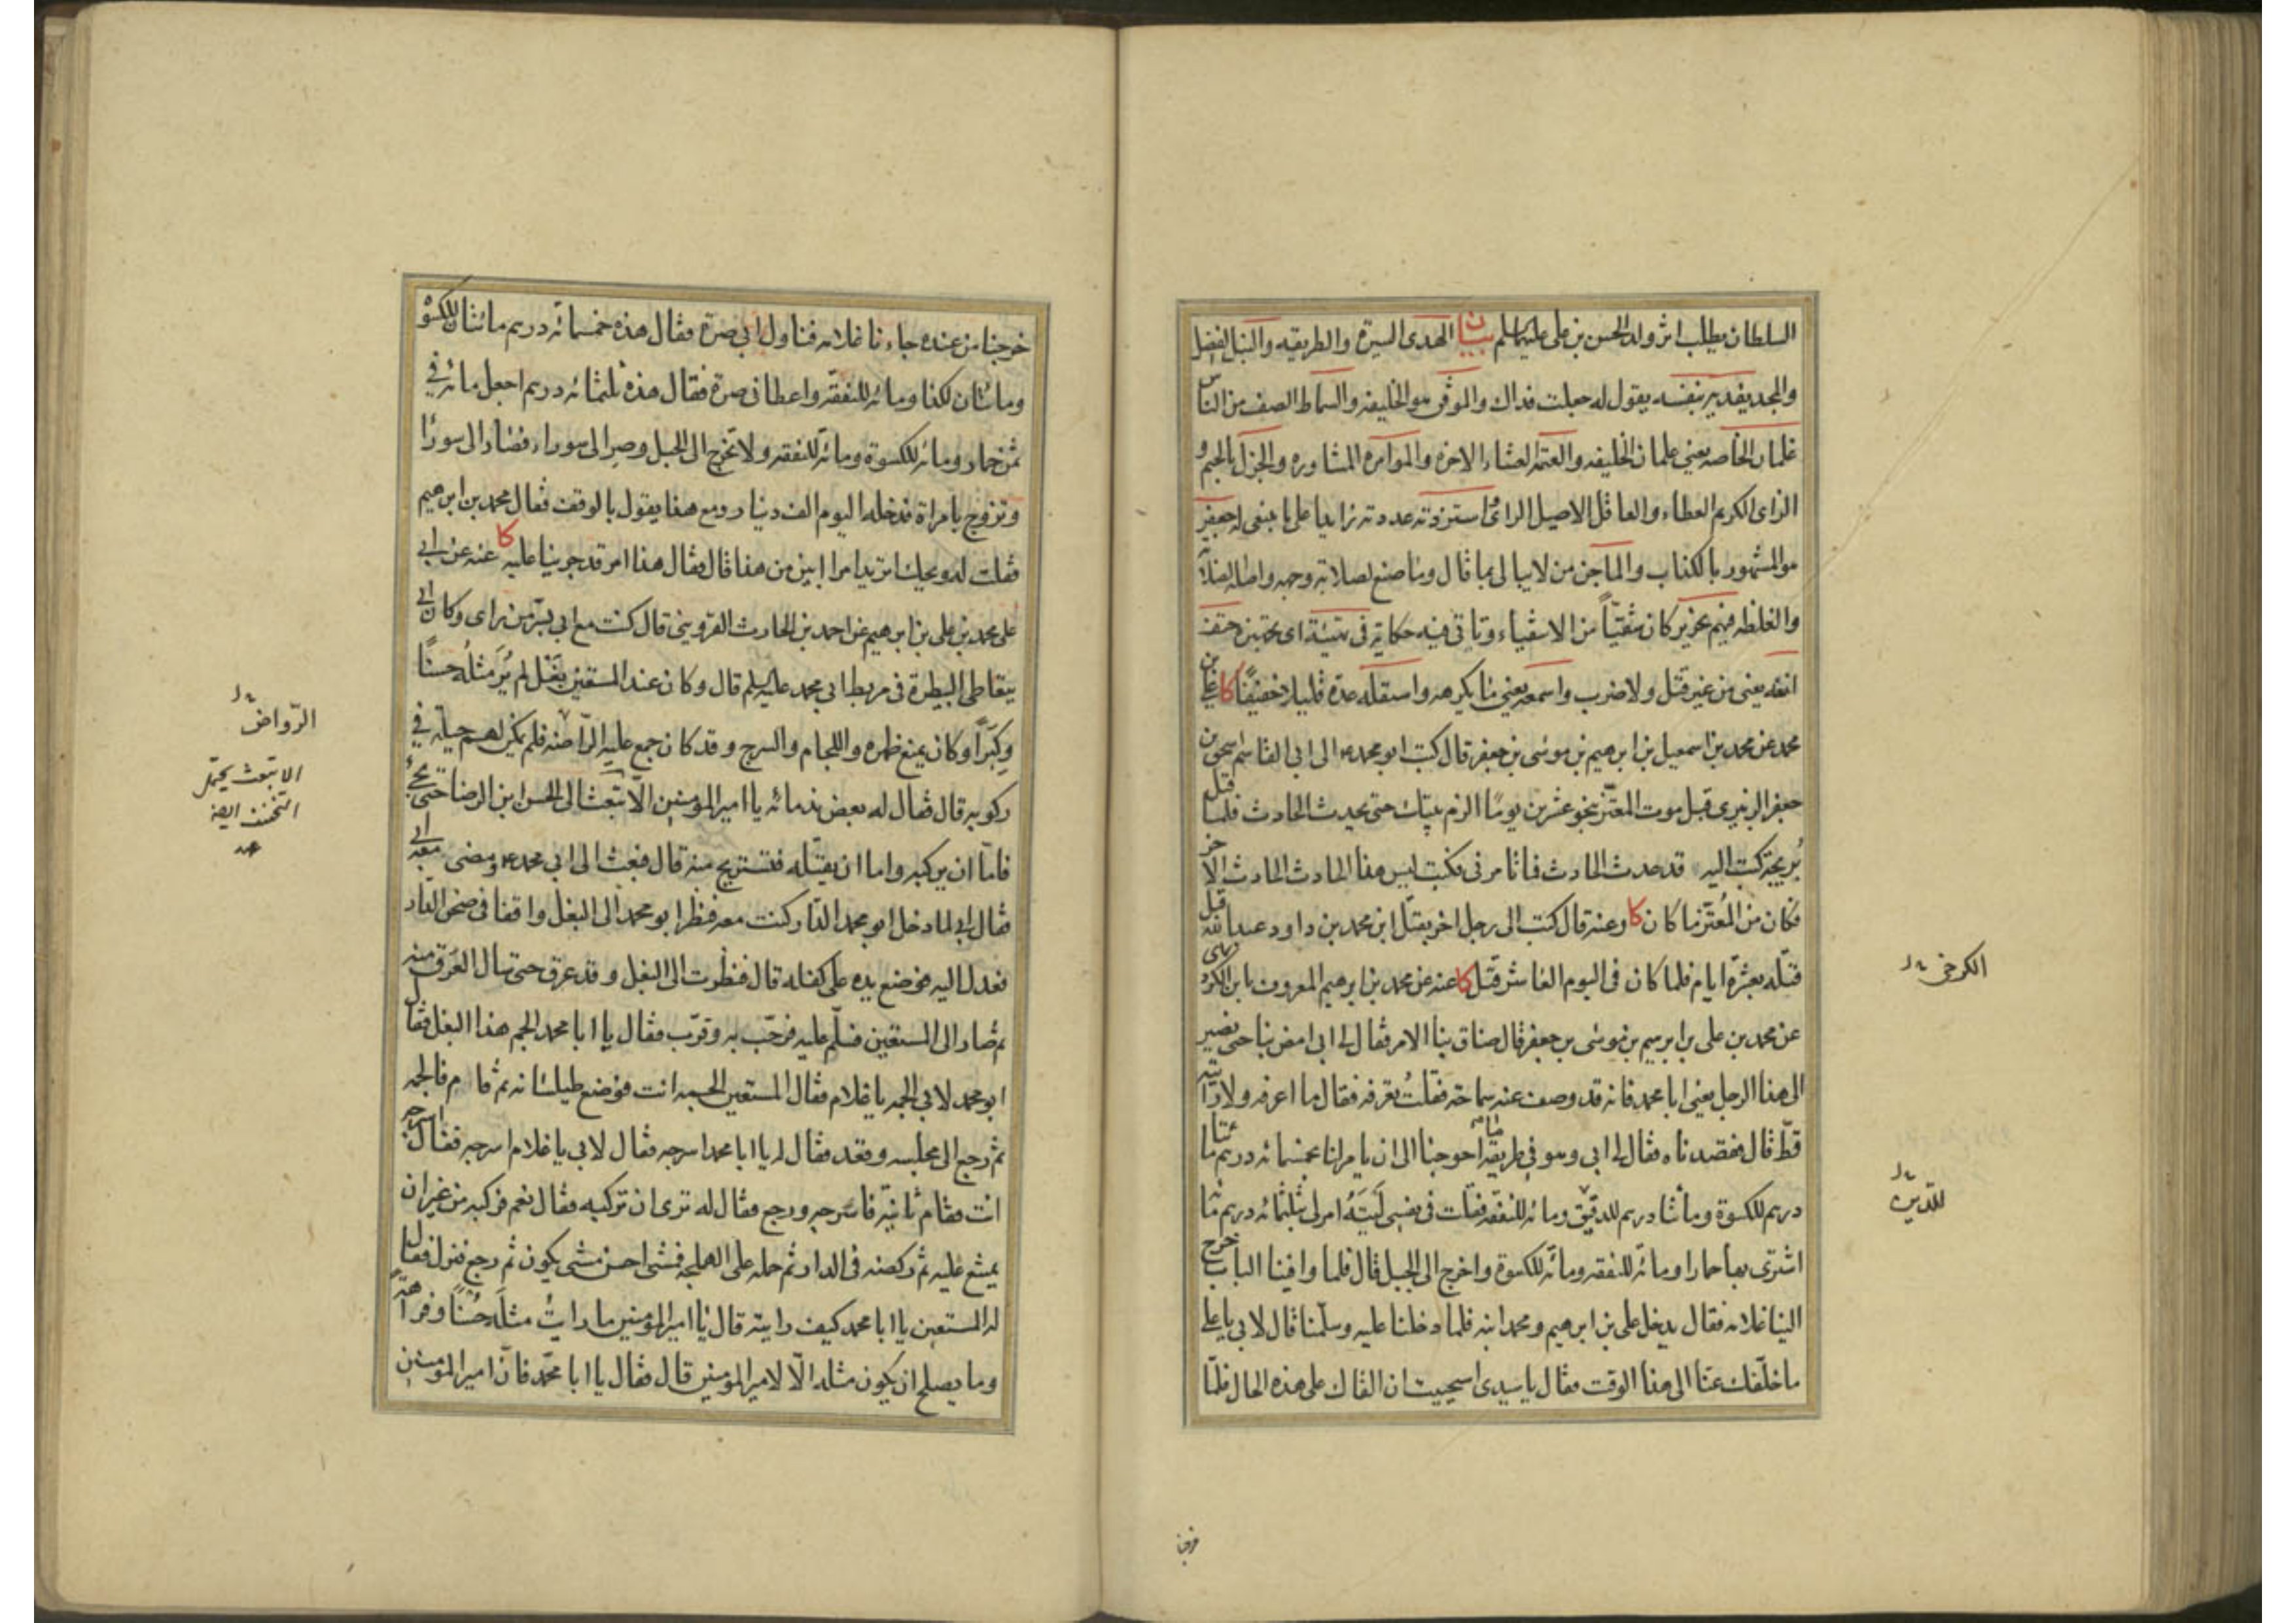 السلطان يطلب اثر ولد الحسن بن على عليهما السلم بيان الهدى السيرة والطريقه والنبل الفضل
والمجد يفديه بنفسه يقول له جعلت فداك والموفق هو الخليفه والسماط الصف من الناس
غلمان الخاصه يعني غلمان الخليفه والعتمه العشاء الاخره والموامره المشاوره والجزل بالجيم و
الزاى الكريم العطاء والعاقل الاصيل الراى استزدته عددته زايدا على ما ينبغى له جعفر
هو المشهور بالكذاب والماجن من لايبالى بما قال وما صنع لصلابة وجهه واصله الصلابة
والغلظه فيهم نحرير كان شقيّاً من الاشقياء وتاتى فيه حكاية فى
انفه يعنى من غير قتل ولا ضرب واسمعه يعني ما يكرهه واستقله عدة قليلا خفيفًا كا على بن
محمد عن محمد بن اسمعيل بن ابرهيم بن موسى بن جعفر قال كتب ابو محمد ع الى ابى القاسم اسحق بن
جعفر الزبيرى قبل موت المعتز بنحو عشرين يومًا الزم بيتك حتى يحدث الحادث فلما قتل
بُريحة كتب اليه قد حدث الحادث فما تامرنى فكتب ليس هذا الحادث الحادث الاخر
فكان من المُعتز ما كان كا وعنه قال كتب الى رجل اخر يقتل ابن محمد بن داود عبد الله قبل
قتله بعشرة ايام فلما كان فى اليوم العاشر قتل كا عنه عن محمد بن ابرهيم المعروف بابن الكردى
عن محمد بن على بن ابرهيم بن موسى بن جعفر قال ضاق بنا الامر فقال لى ابى امض بنا حتى نصير
الى هذا الرجل يعنى ابا محمد فانه قد وصف عنه سماحة فقلتُ تعرفه فقال ما اعرفه ولا رايته
قطّ قال فقصدناه فقال لى ابى وهو فى طريقه ما احوجنا الى ان يامر لنا بخمسمائه درهم مائتا
درهم للكسوة ومائتا درهم للدقيق ومائه للنفقه فقلت فى نفسى لَيتَهُ امر لى بثلثمائه درهم مائه
اشترى بها حمارا ومائه للنفقه ومائه للكسوة واخرج الى الجبل قال فلما وافينا الباب خرج
الينا غلامه فقال يدخل على بن ابرهيم ومحمد ابنه فلما دخلنا عليه وسلّمنا قال لابى يا على
ما خلّفك عنا الى هذا الوقت فقال يا سيدى استحييت ان القاك على هذه الحال فلمّا
الكرخى
للدّين
خرجنا
خرجنا من عنده جاءنا غلامه فناول ابى صرة فقال هذه خمسمائه درهم مائتان للكسوة
ومائتان لكذا ومائه للنفقه واعطانى صرة فقال هذه ثلثمائه درهم اجعل مائه فى
ثمن حمار ومائه للكسوة ومائه للنفقه ولا تخرج الى الجبل وصر الى سوراء فصار الى سورا
وتزوج بامراة فدخله اليوم الف دينار ومع هذا يقول بالوقف فقال محمد بن ابرهيم
فقلت له ويحك اتريد امرا ابين من هذا قال فقال هذا امر قد جرينا عليه كا عنه عن ابى
على محمد بن على بن ابرهيم عن احمد بن الحارث القزوينى قال كنت مع ابى بسرّ من راى وكان ابى
يتعاطى البيطرة فى مربط ابى محمد عليه السلم قال وكان عند المستعين بَغل لم يُرَ مثلُه حسنًا
وكِبَراً وكان يمنع ظهره واللجام والسرج وقد كان جمع عليه الراضة فلم يكن لهم حيلة فى
ركوبه قال فقال له بعض ندمائه يا امير المؤمنين الّا تبعث الى الحسن ابن الرضا حتى يجئ
فامّا ان يركبه واما ان يقتله فتستريح منه قال فبعث الى ابى محمد ع ومضى معه ابى
فقال ابى لما دخل ابو محمد الدّار كنت معه فنظر ابو محمد الى البغل واقفا فى صحن الدّار
فعدل اليه فوضع يده على كفله قال فنظرت الى البغل وقد عرق حتى سال العَرق منه
ثم صار الى المستعين فسلّم عليه فرحّب به وقرّب فقال يا ابا محمد الجم هذا البغل فقال
ابو محمد لابى الجمه يا غلام فقال المستعين الجمه انت فوضع طيلسانه ثم قام فالجمه
ثم رجع الى مجلسه وقعد فقال له يا ابا محمد اسرجه فقال لابى يا غلام اسرجه فقال اسرجه
انت فقام ثانية فاسرجه ورجع فقال له ترى ان تركبه فقال نعم فركبه من غير ان
يمتنع عليه ثم ركضه فى الدار ثم حمله على الهملجه فمشى احسن مشى يكون ثم رجع فنزل فقال
له المستعين يا ابا محمد كيف رايته قال يا امير المؤمنين ما رايتُ مثلَه حُسنًا وفراهة
وما يصلح ان يكون مثله الّا لامير المؤمنين قال فقال يا ابا محمّد فانّ امير المؤمنين
الرّواض
الا تبعث يحتمل
التخفيف ايضا